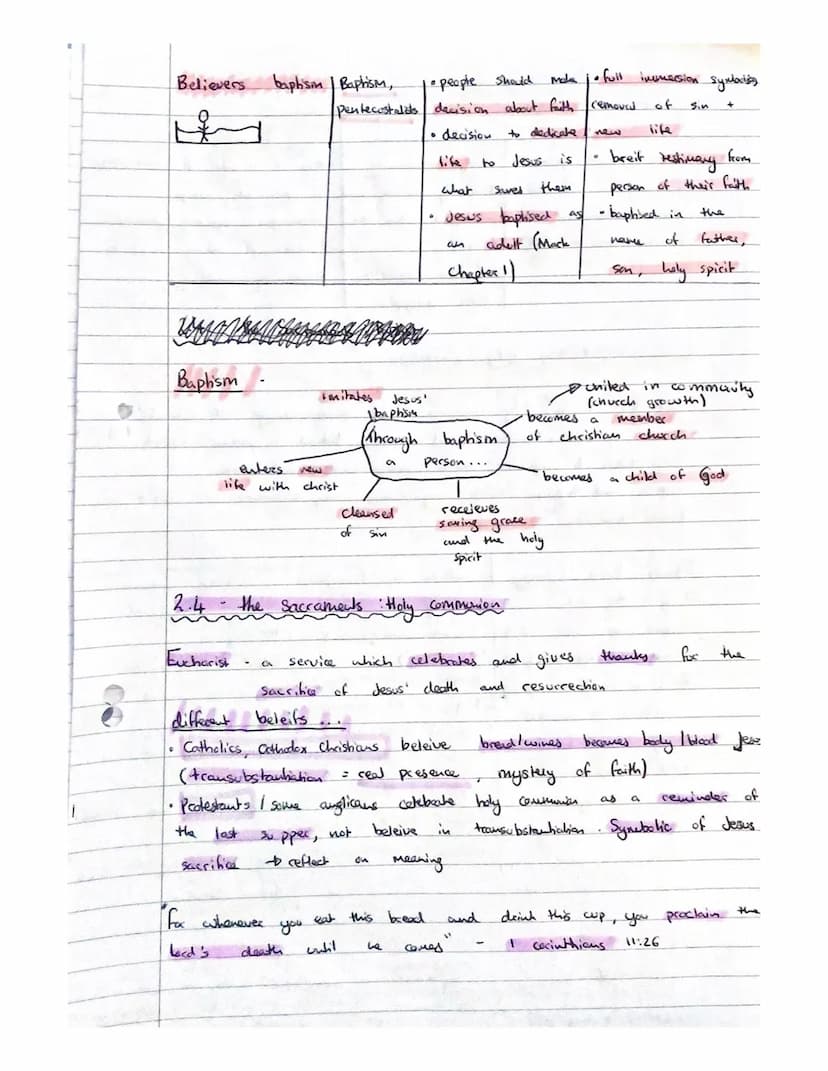 Believers baptism
Baptism,
pentecostalds
• people should make
decision about faith
• decision to dedicate
life to Jesus is
what saves them
• Jesus baptised as
an adult (Mark
Chapter 1)
• full immersion symbolises
removal of sin +
new life
• breif testimony from
person of their faith
- baptised in the
name of father,
son, holy spirit
Baptism -
imitates Jesus'
baptism
Through baptism
a person...
united in community
(church growth)
becomes a member
of christian church
becomes a child of God
enters new
life with christ
cleansed
of sin
receieves
saving grace
and the holy
spirit
2.4 - the sacraments : Holy communion
Eucharist - a service which celebrates and gives thanks for the
sacrifice of Jesus' death and resurrection
different beleifs ...
• Catholics, Orthodox Christians beleive bread/wines becomes body/blood Jesus
(transubstantiation = real presence, mystery of faith)
• Protestants / some anglicans celebrate holy communion as a reminder of
the last supper, not beleive in transubstantiation. Symbolic of Jesus
sacrifice → reflect on meaning
"For whenever you eat this bread and drink this cup, you proclaim the
lord's death until he comes" - 1 corinthians 11:26